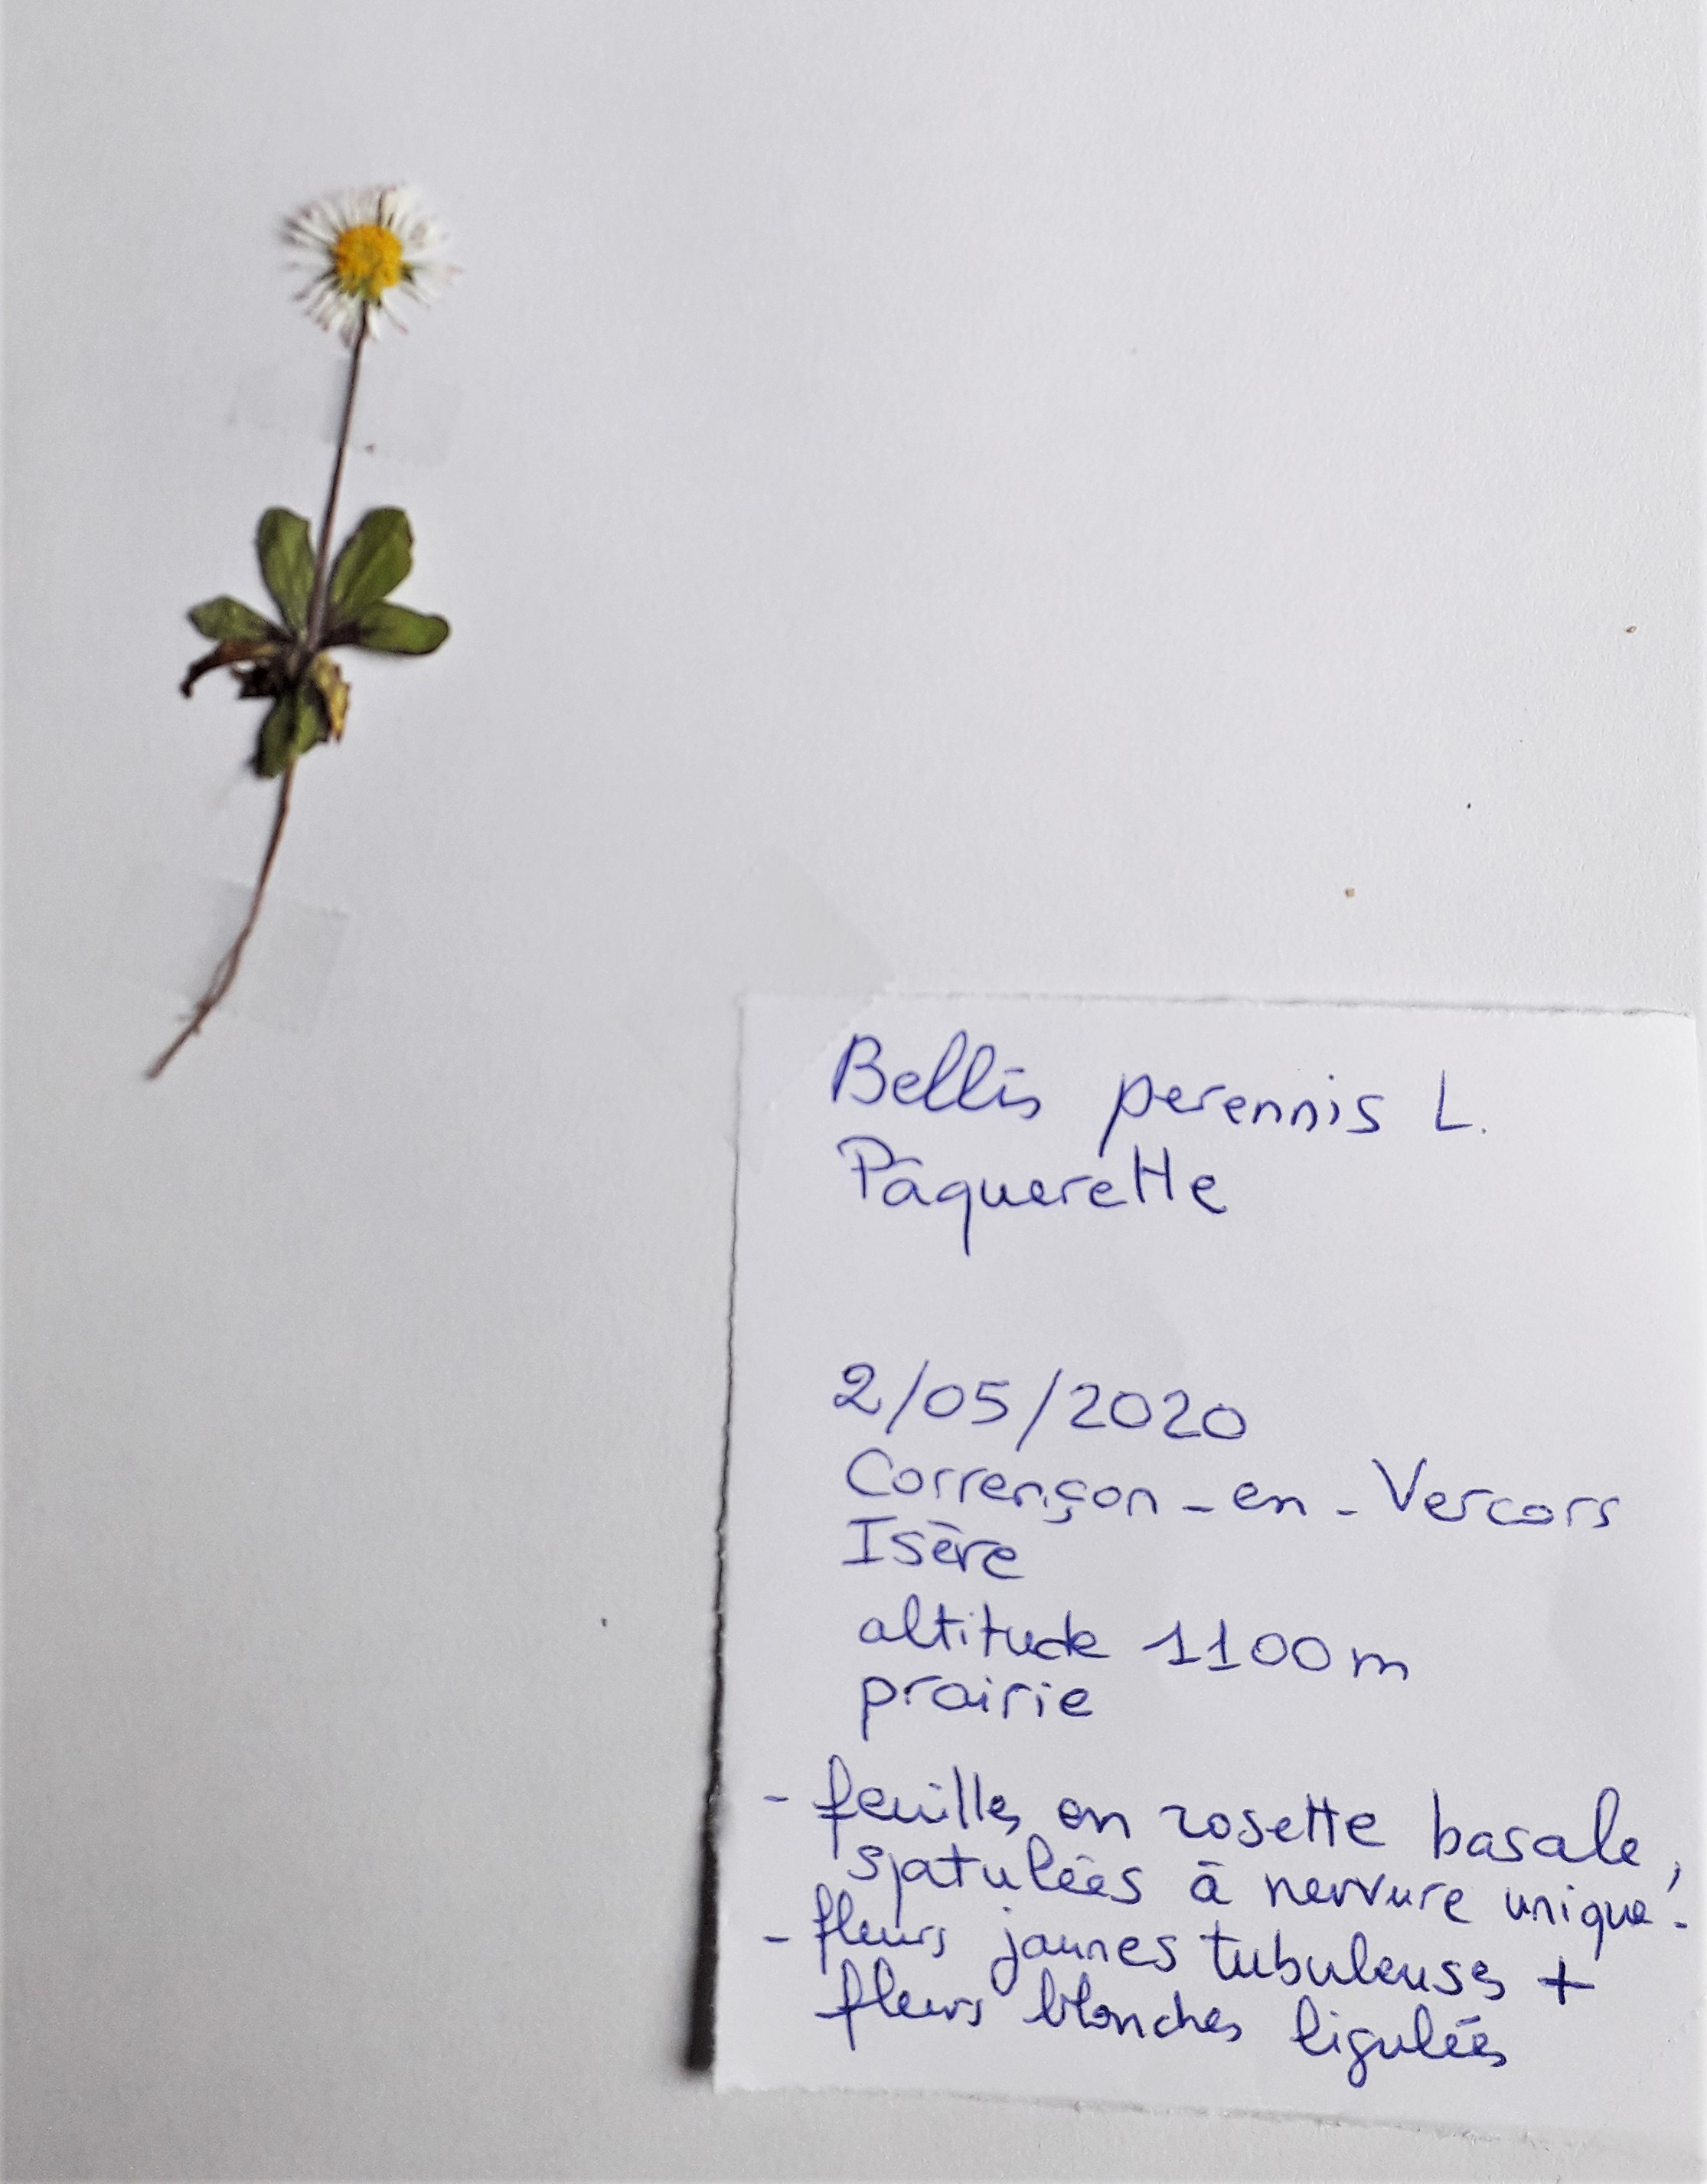 Bellis perennis L.
Pâquerette
2/05/2020
Corrençon-en-Vercors
Isère
altitude 1100m
prairie
- feuilles en rosette basale,
spatulées à nervure unique.
- fleurs jaunes tubuleuses +
fleurs blanches ligulées